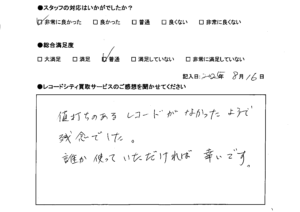 ●スタッフの対応はいかがでしたか？
☑非常に良かった □良かった □普通 □良くない □非常に良くない
●総合満足度
□大満足 □満足 ☑普通 □満足していない □非常に満足していない
記入日: 2022年 8月16日
●レコードシティ買取サービスのご感想を聞かせてください
値打ちのある レコードが なかったようで
残念でした。
誰か 使って いただければ 幸いです。